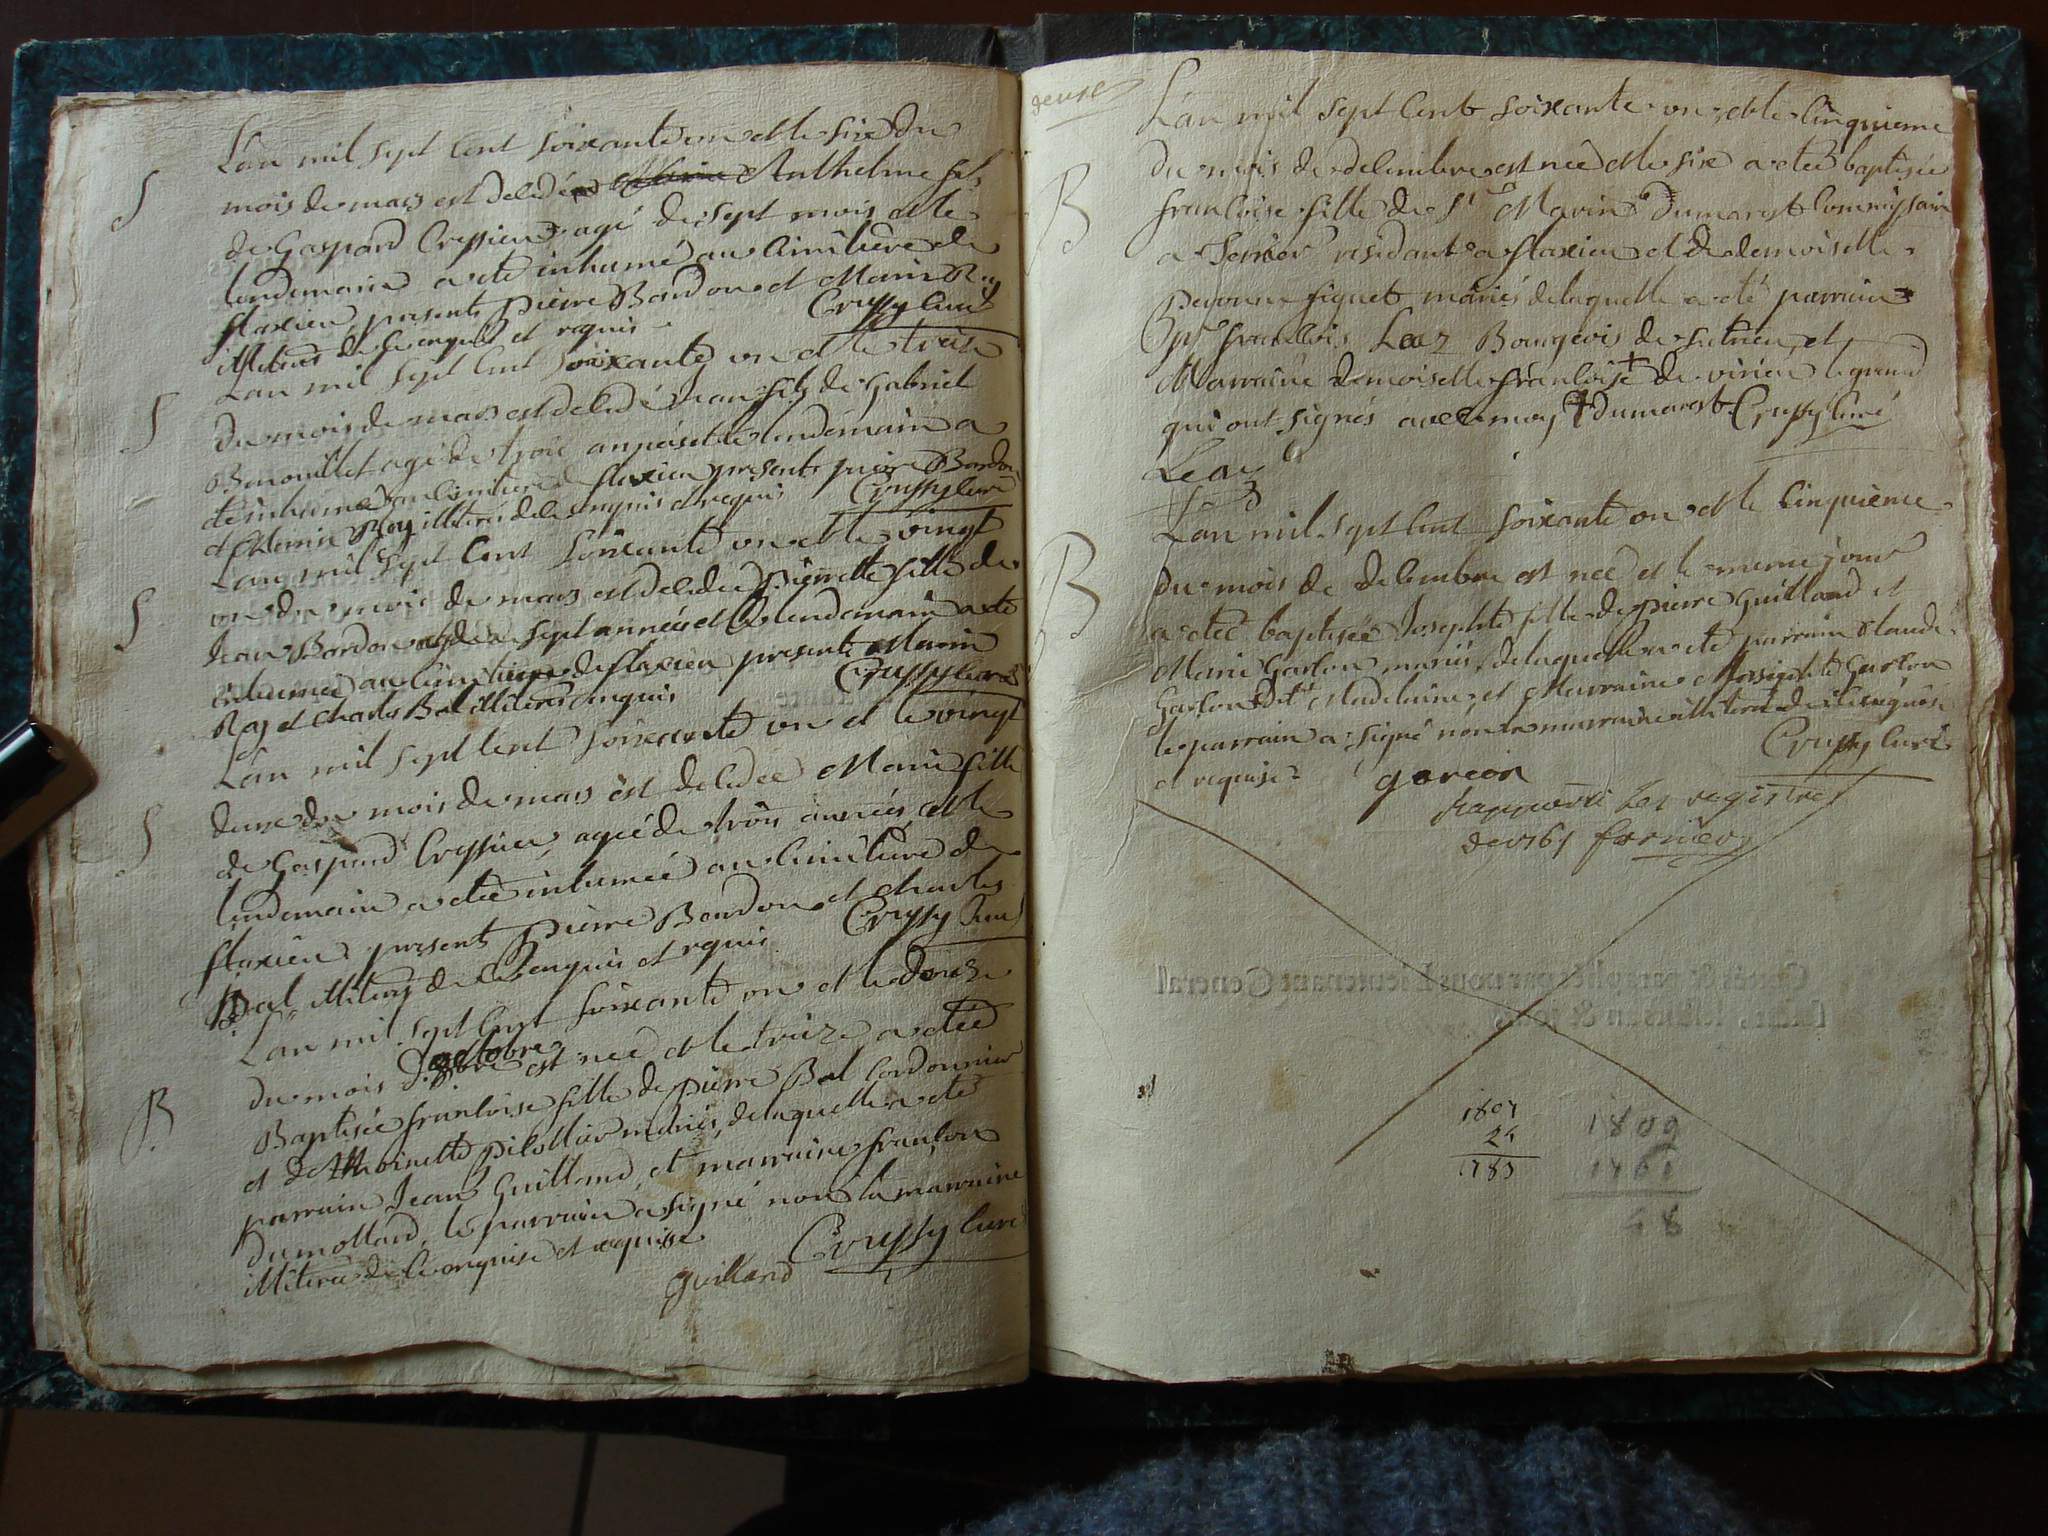 L'an mil sept cent soixante un et le six du
S
mois de mars est decedé Anthelme fils
de Gaspard Cressieu agé de sept mois et le
lendemain a eté inhumé au cimitière de
flaxieu presents pierre Bardon et Marin Roy
illiterés de ce enquis et requis Crussy curé
L'an mil sept cent soixante un et le treize
S
du mois de mars est decedé jean fils de Gabriel
Benouillet agé de trois années et le lendemain a
eté inhumé au cimitiere de flaxieu presents pierre Bardon
et Marin Roy illiterés de ce enquis et requis Crussy curé
L'an mil sept cent soixante un et le vingt
un du mois de mars est decedée Pierrette fille de
S
Jean Bardon agée de sept années et le lendemain a eté
inhumée au cimitiere de flaxieu presents Marin
Roy et Charles Bal illiterés enquis Crussy curé
L'an mil sept cent soixante un et le vingt
deux du mois de mars est decedée Marie fille
S
de Gaspard Cressieu agée de trois années et le
lendemain a eté inhumée au cimitière de
flaxieu presents pierre Bardon et charles
Bal illiterés de ce enquis et requis Crussy curé
L'an mil sept cent soixante un et le douze
du mois d'octobre est née et le treize a eté
B
Baptisée françoise fille de pierre Bal Cordonnier
et de Thoinette pilollier mariés, de laquelle a eté
parrain Jean Guilland, et marraine françon
Dumollard, le parrain a signé non la marraine
illiterée de ce enquise et requise Crussy curé
guilland
deuse
L'an mil sept cent soixante un, et le cinquieme
du mois de decembre est née et le six a eté baptisée
B
françoise fille de Sr Marin Dumarest Commissaire
a Terrier residant a flaxieu et de demoiselle
Peronne figuet mariés de laquelle a eté parrain
Sr francois Leaz Bourgeois de Sutrieu, et
Marraine demoiselle françoise de virieu le grand
qui ont signés avec moy Dumarest Crussy curé
Leaz
L'an mil sept cent soixante un et le cinquieme
du mois de decembre est née et le meme jour
B
a eté baptisée Josephte fille de pierre Guilland et
Marie Garson mariés, de laquelle a eté parrain Claude
Garson dit Madelaine, et Marraine Josephte Garson
le parrain a signé non la marraine illiterée de ce enquise
et requise Crussy curé
garcon
les registres
de 1761 fornier
1807
24
1783
1809
1761
48